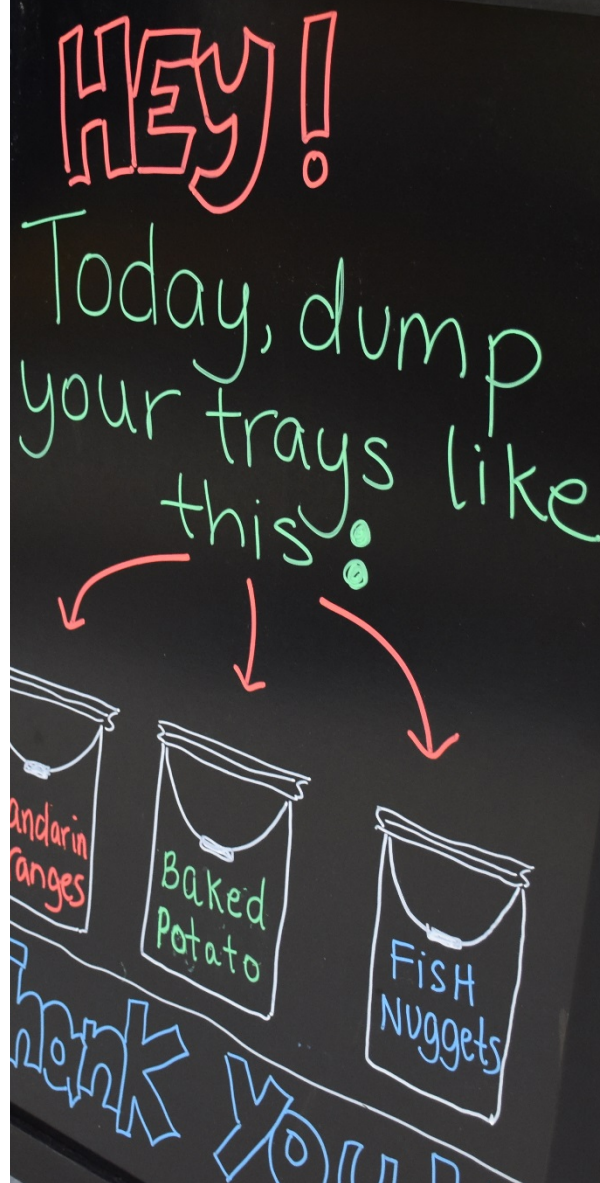 HEY!
Today, dump
your trays like
this:
andarin
ranges
Baked
Potato
FisH
Nuggets
hank you!